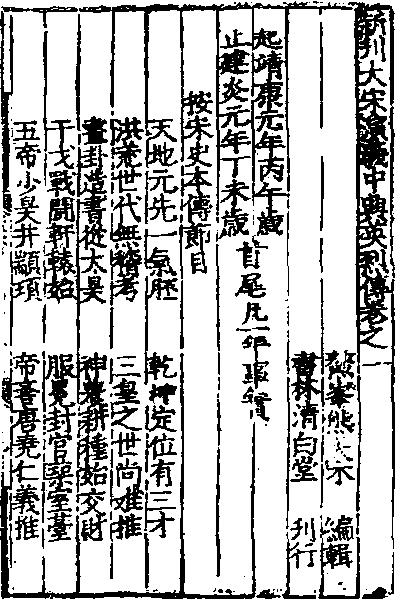 新刊大宋演義中興英烈傳卷之一
鰲峯熊大木 編輯
書林清白堂 刊行
起靖康元年丙午歲
止建炎元年丁未歲
首尾凡一年事實
按宋史本傳節目
天地元先一氣胚 乾坤定位有三才
洪荒世代無稽考 三皇之世尚难推
畫卦造書從太昊 神農耕種始交財
干戈戰鬪軒轅始 服冕封官築室臺
五帝少昊并顓頊 帝嚳唐堯仁義推